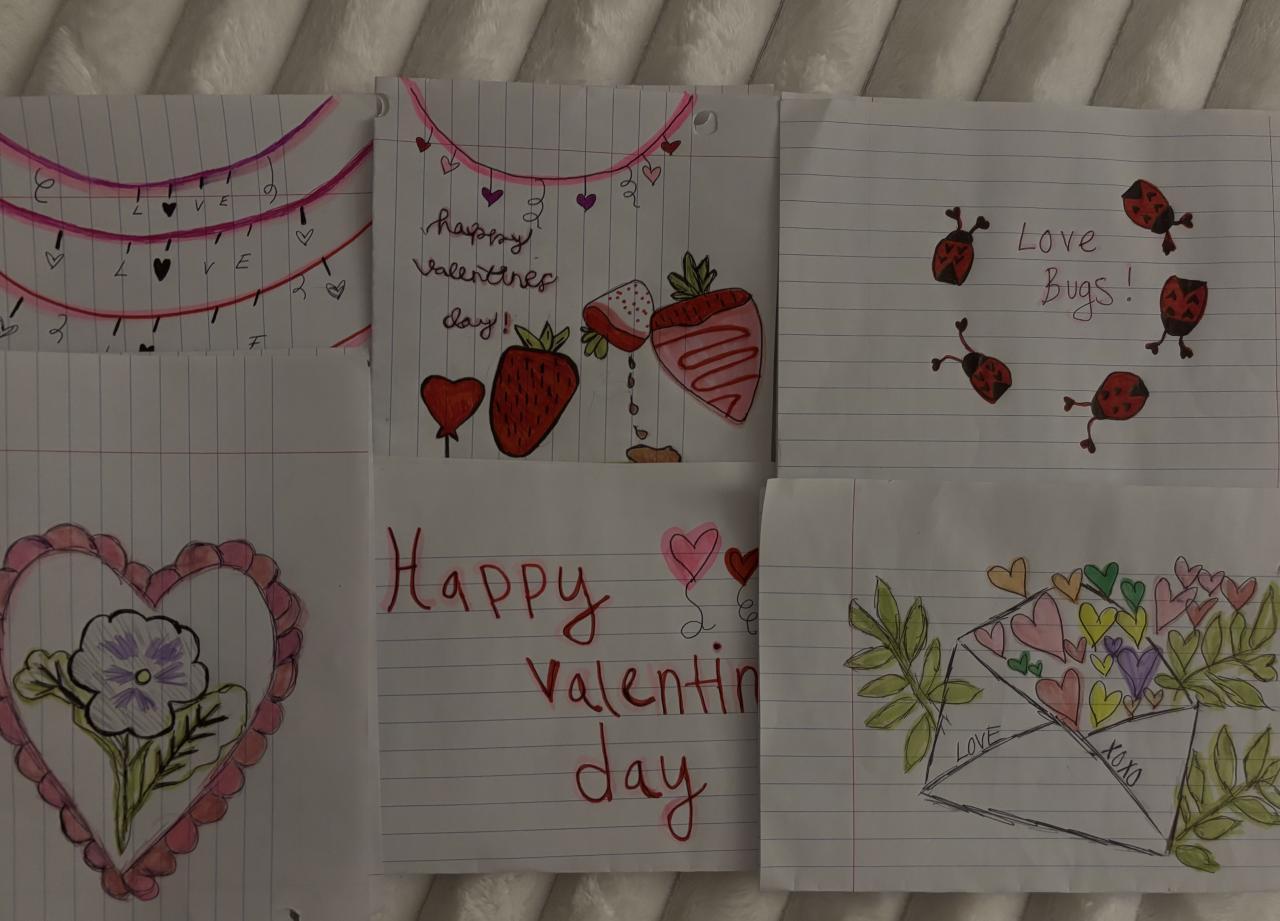 L ♥ V E
L ♥ V E
happy
valentines
day!
Love
Bugs!
Happy
Valentin
day
LOVE
XOXO